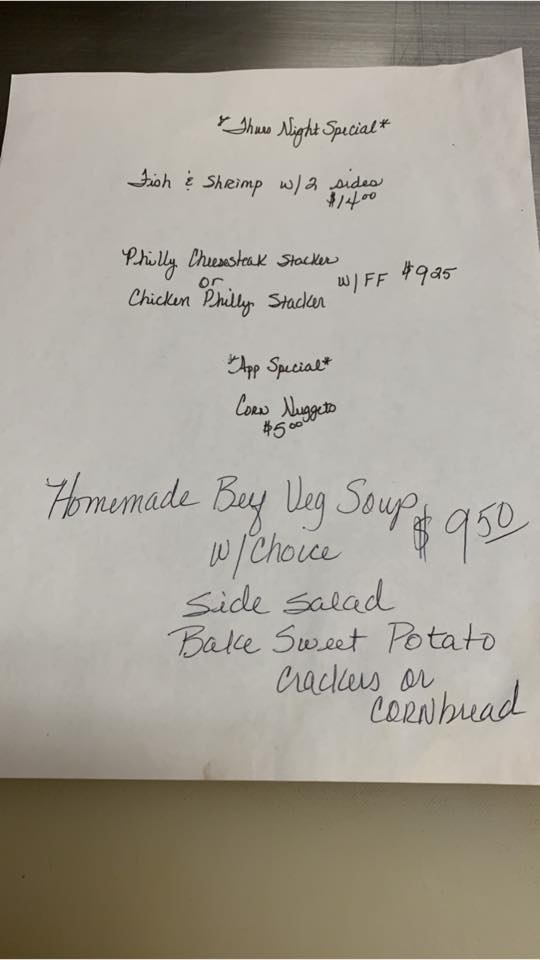 *Thurs Night Special*
Fish & Shrimp w/2 sides
$14.00
Philly Cheesesteak Stacker
or
w/FF $9.25
Chicken Philly Stacker
*App Special*
Corn Nuggets
$5.00
Homemade Beef Veg Soup
$9.50
w/Choice
Side Salad
Bake Sweet Potato
Crackers or
CORNbread